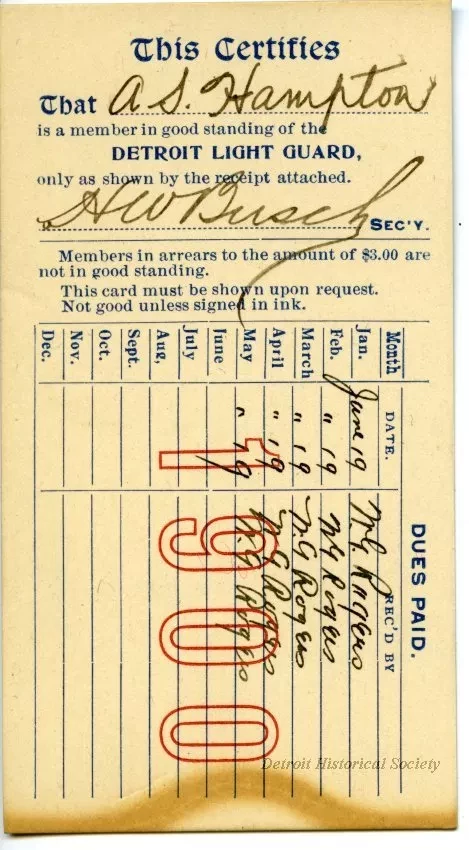 This Certifies
That A S. Hampton
is a member in good standing of the
DETROIT LIGHT GUARD,
only as shown by the receipt attached.
H W Busch SEC'Y.
Members in arrears to the amount of $3.00 are
not in good standing.
This card must be shown upon request.
Not good unless signed in ink.
DUES PAID.
Month DATE. REC'D BY
Jan. June 19 M. G. Rogers
Feb. " 19 M G Rogers
March " 19 M. G Rogers
April " 19 M G Rogers
May " 19 M. G Rogers
June
July
Aug.
Sept.
Oct.
Nov.
Dec.
1900
Detroit Historical Society